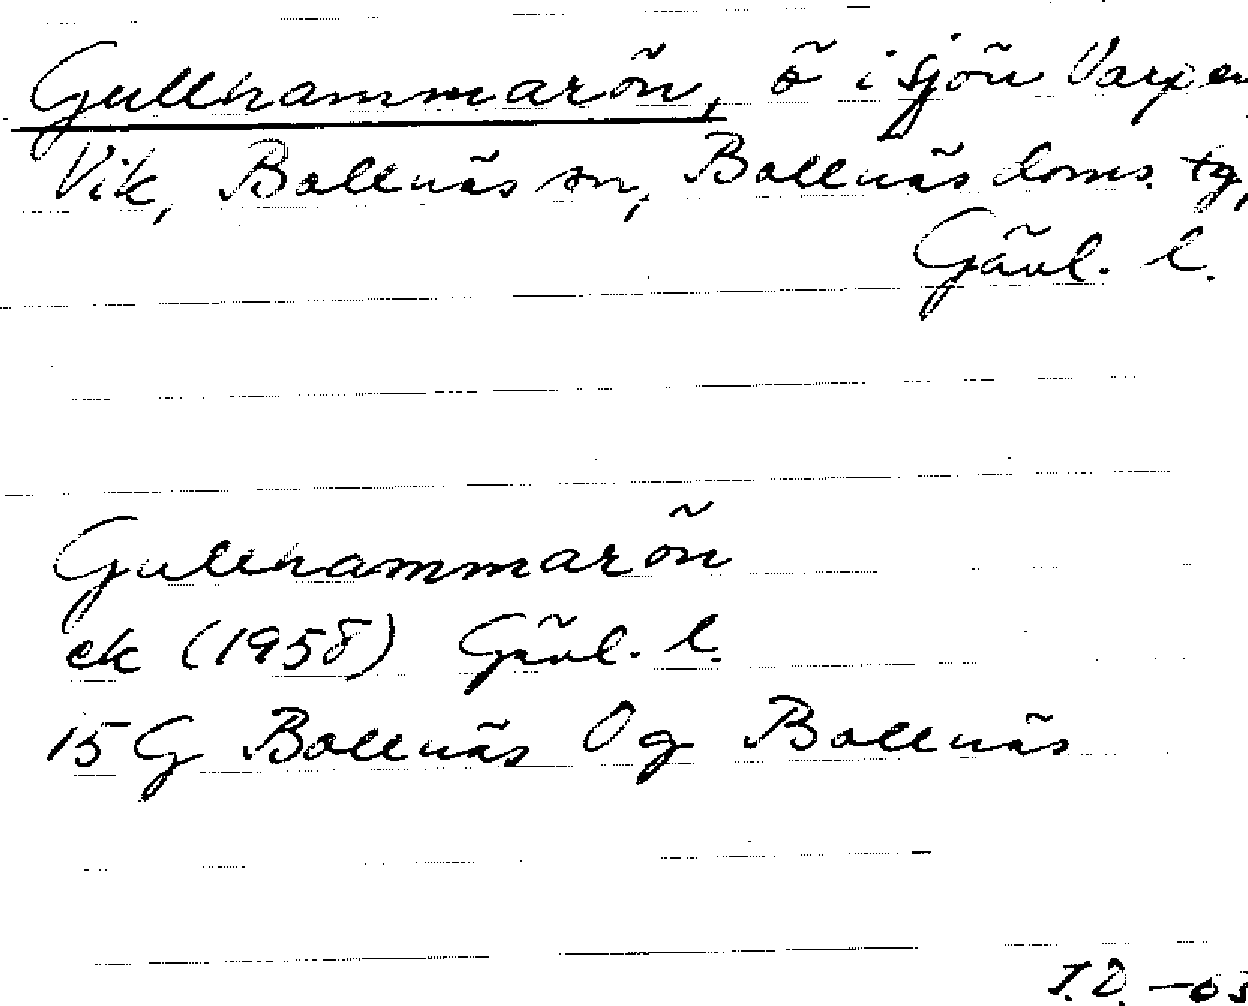 Gullhammarön, ö i sjön Varpen
Vik, Bollnäs sn, Bollnäs doms. tg,
Gävl. l.
Gullhammarön
ek (1958) Gävl. l.
15 G Bollnäs 0 g Bollnäs